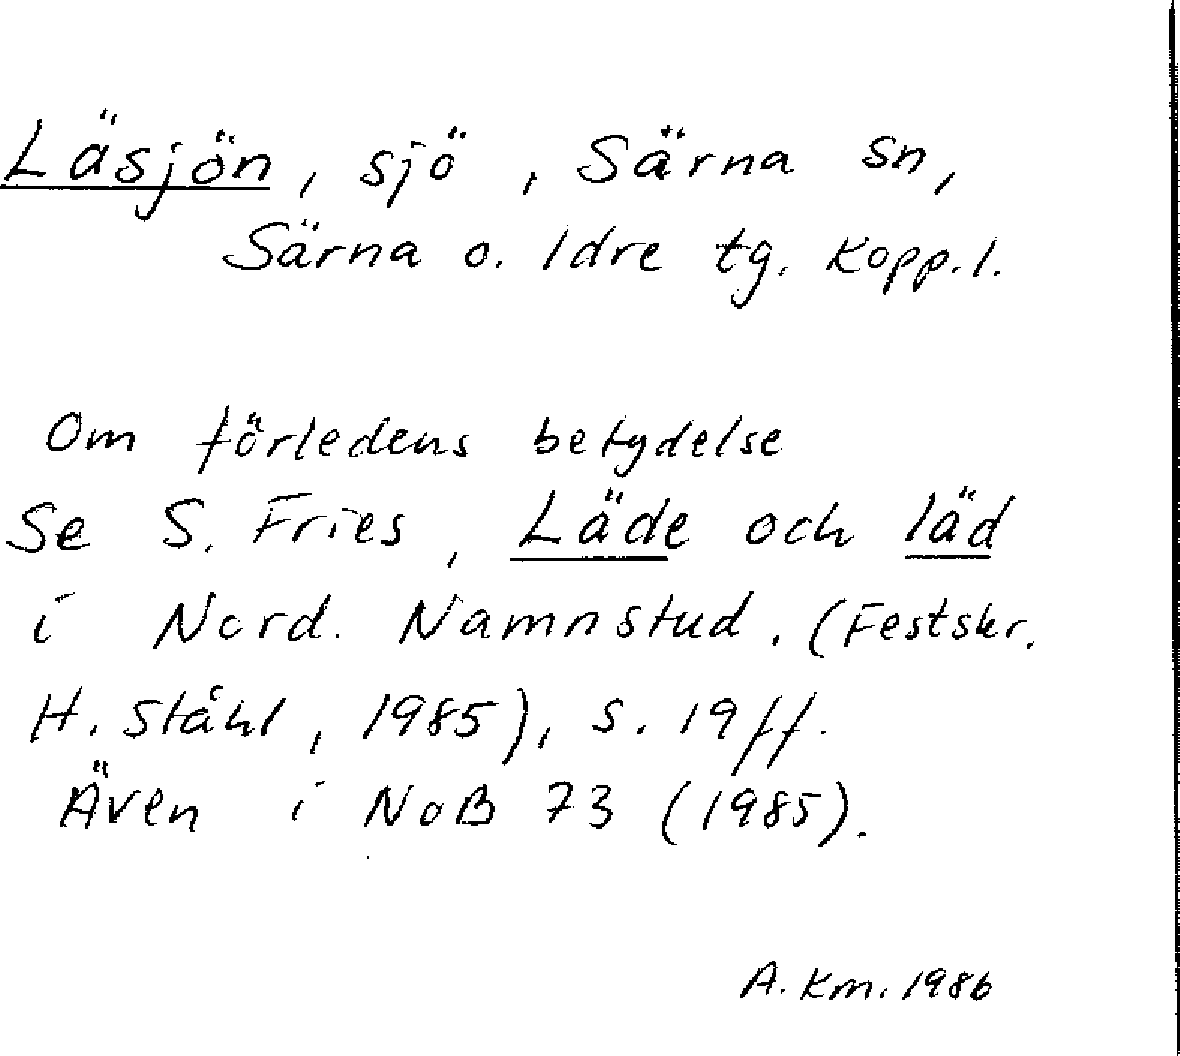 Läsjön, sjö, Särna sn,
Särna o. Idre tg. Kopp.l.
Om förledens betydelse
Se S. Fries, Läde och läd
i Nord. Namnstud. (Festskr.
H. Ståhl, 1985), s. 19ff.
Även i NoB 73 (1985).
A. Km. 1986